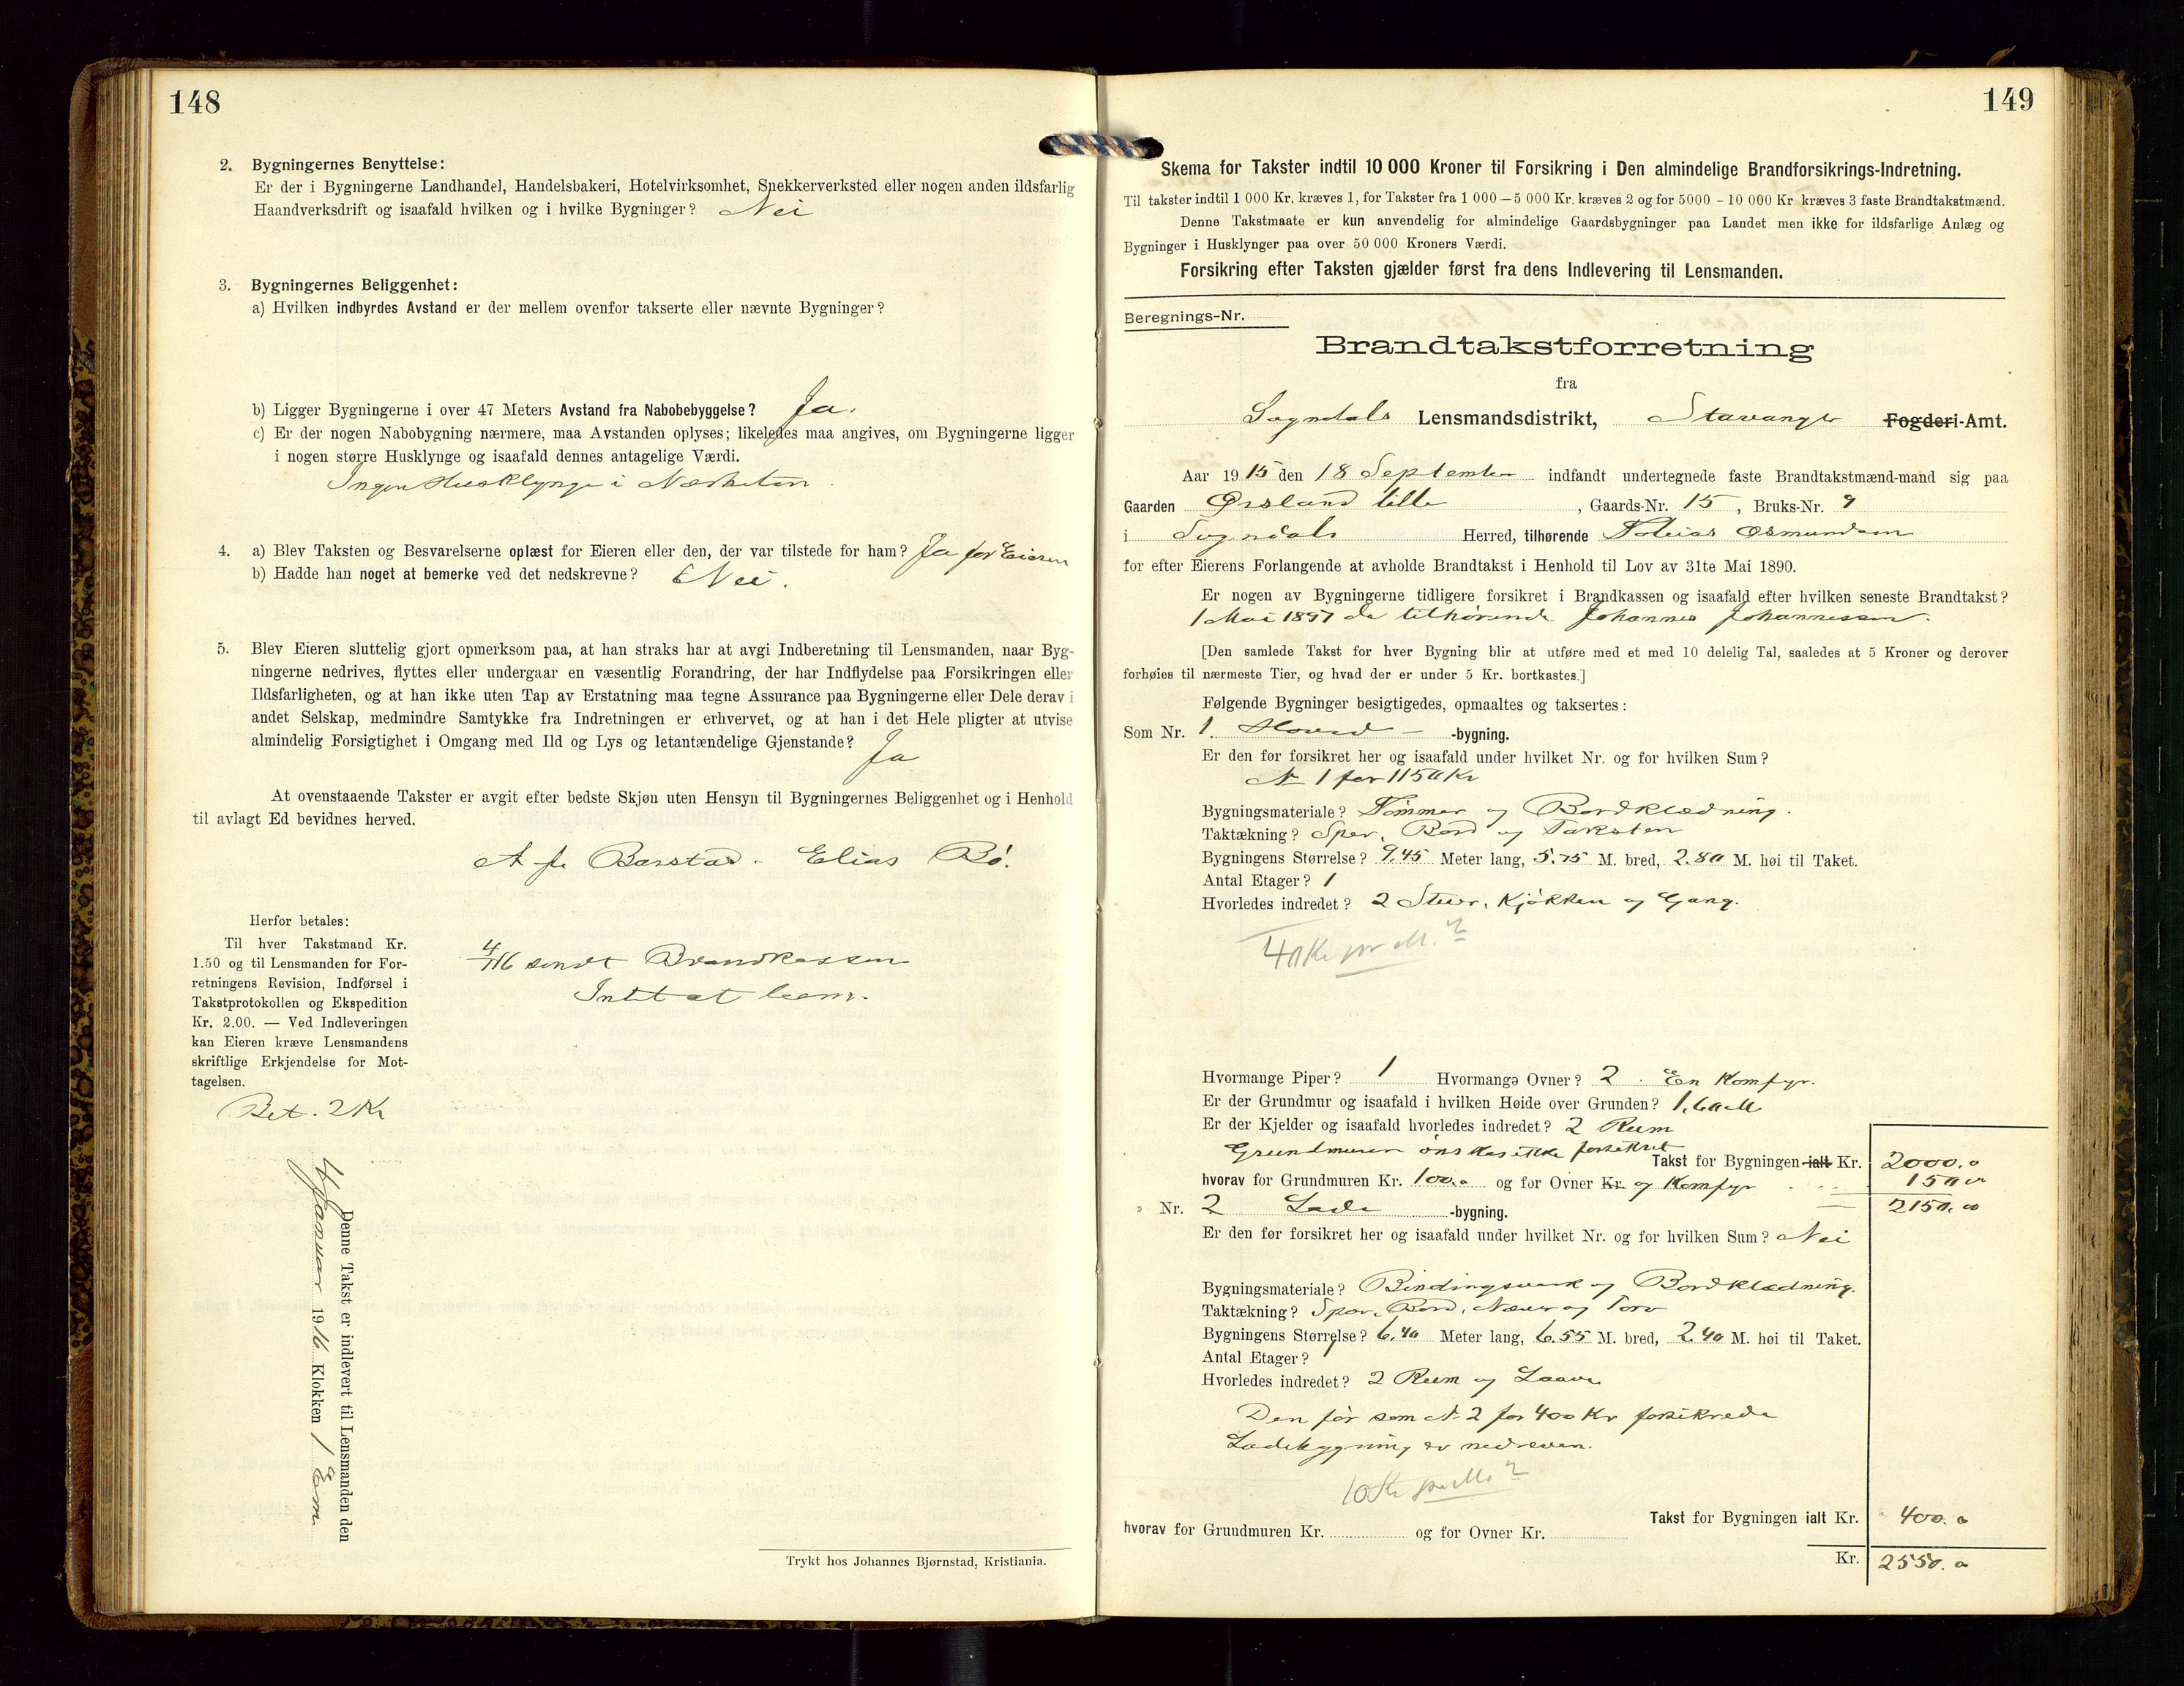 148
2. Bygningernes Benyttelse:
Er der i Bygningerne Landhandel, Handelsbakeri, Hotelvirksomhet, Snekkerverksted eller nogen anden ildsfarlig
Haandverksdrift og isaafald hvilken og i hvilke Bygninger? Nei
3. Bygningernes Beliggenhet:
a) Hvilken indbyrdes Avstand er der mellem ovenfor takserte eller nævnte Bygninger?
b) Ligger Bygningerne i over 47 Meters Avstand fra Nabobebyggelse? Ja.
c) Er der nogen Nabobygning nærmere, maa Avstanden oplyses; likeledes maa angives, om Bygningerne ligger
i nogen større Husklynge og isaafald dennes antagelige Værdi.
Ingen Husklynge i Nærheten.
4. a) Blev Taksten og Besvarelserne oplæst for Eieren eller den, der var tilstede for ham? Ja for Eieren
b) Hadde han noget at bemerke ved det nedskrevne? Nei.
5. Blev Eieren sluttelig gjort opmerksom paa, at han straks har at avgi Indberetning til Lensmanden, naar Byg-
ningerne nedrives, flyttes eller undergaar en væsentlig Forandring, der har Indflydelse paa Forsikringen eller
Ildsfarligheten, og at han ikke uten Tap av Erstatning maa tegne Assurance paa Bygningerne eller Dele derav i
andet Selskap, medmindre Samtykke fra Indretningen er erhvervet, og at han i det Hele pligter at utvise
almindelig Forsigtighet i Omgang med Ild og Lys og letantændelige Gjenstande? Ja
At ovenstaaende Takster er avgit efter bedste Skjøn uten Hensyn til Bygningernes Beliggenhet og i Henhold
til avlagt Ed bevidnes herved.
Barstad. Elias Bø.
Herfor betales:
Til hver Takstmand Kr.
1.50 og til Lensmanden for For-
retningens Revision, Indførsel i
Takstprotokollen og Ekspedition
Kr. 2.00. — Ved Indleveringen
kan Eieren kræve Lensmandens
skriftlige Erkjendelse for Mot-
tagelsen.
Bet. 2 Kr
sendt Brandkassen
Intet at bem.
Denne Takst er indlevert til Lensmanden den
4 Januar 1916 Klokken 1 Em.
Trykt hos Johannes Bjørnstad, Kristiania.
149
Skema for Takster indtil 10 000 Kroner til Forsikring i Den almindelige Brandforsikrings-Indretning.
Til takster indtil 1 000 Kr. kræves 1, for Takster fra 1 000 — 5 000 Kr. kræves 2 og for 5000 - 10 000 Kr kræves 3 faste Brandtakstmænd.
Denne Takstmaate er kun anvendelig for almindelige Gaardsbygninger paa Landet men ikke for ildsfarlige Anlæg og
Bygninger i Husklynger paa over 50 000 Kroners Værdi.
Forsikring efter Taksten gjælder først fra dens Indlevering til Lensmanden.
Beregnings-Nr.
Brandtakstforretning
fra
Sogndals Lensmandsdistrikt, Stavanger Fogderi-Amt.
Aar 1915 den 18 September indfandt undertegnede faste Brandtakstmænd-mand sig paa
Gaarden Ørsland lille, Gaards-Nr. 15, Bruks-Nr. 9
i Sogndals Herred, tilhørende Tobias Osmundsen
for efter Eierens Forlangende at avholde Brandtakst i Henhold til Lov av 31te Mai 1890.
Er nogen av Bygningerne tidligere forsikret i Brandkassen og isaafald efter hvilken seneste Brandtakst?
1 Mai 1897 da tilhørende Johannes Johannessen.
[Den samlede Takst for hver Bygning blir at utføre med et med 10 delelig Tal, saaledes at 5 Kroner og derover
forhøies til nærmeste Tier, og hvad der er under 5 Kr. bortkastes.]
Følgende Bygninger besigtigedes, opmaaltes og taksertes:
Som Nr. 1. Hoved -bygning.
Er den før forsikret her og isaafald under hvilket Nr. og for hvilken Sum?
N 1 for 1150 Kr
Bygningsmateriale? Tømmer og Bordklædning.
Taktækning? Sper, Bord og Taksten
Bygningens Størrelse? 9.45 Meter lang, 5.75 M. bred, 2.80 M. høi til Taket.
Antal Etager? 1
Hvorledes indredet? 2 Stuer, Kjøkken og Gang.
40 Kr pr M.²
Hvormange Piper? 1 Hvormange Ovner? 2. En Komfyr.
Er der Grundmur og isaafald i hvilken Høide over Grunden? 1,60 M
Er der Kjelder og isaafald hvorledes indredet? 2 Rum
Grundmuren ønskes ikke forsikret
Takst for Bygningen ialt Kr. 2000.00
hvorav for Grundmuren Kr. 100.00 og for Ovner Kr. og Komfyr 150 00
2150.00
" Nr. 2 Lade -bygning.
Er den før forsikret her og isaafald under hvilket Nr. og for hvilken Sum? Nei
Bygningsmateriale? Bindingsverk og Bordklædning.
Taktækning? Sper, Bord, Næver og Torv
Bygningens Størrelse? 6,40 Meter lang, 6.55 M. bred, 2.40 M. høi til Taket.
Antal Etager? 1
Hvorledes indredet? 2 Rum og Laave
Den før som N. 2 for 400 Kr forsikrede
Ladebygning er nedreven.
10 Kr pr M.²
Takst for Bygningen ialt Kr. 400.00
hvorav for Grundmuren Kr. og for Ovner Kr.
Kr. 2550.00